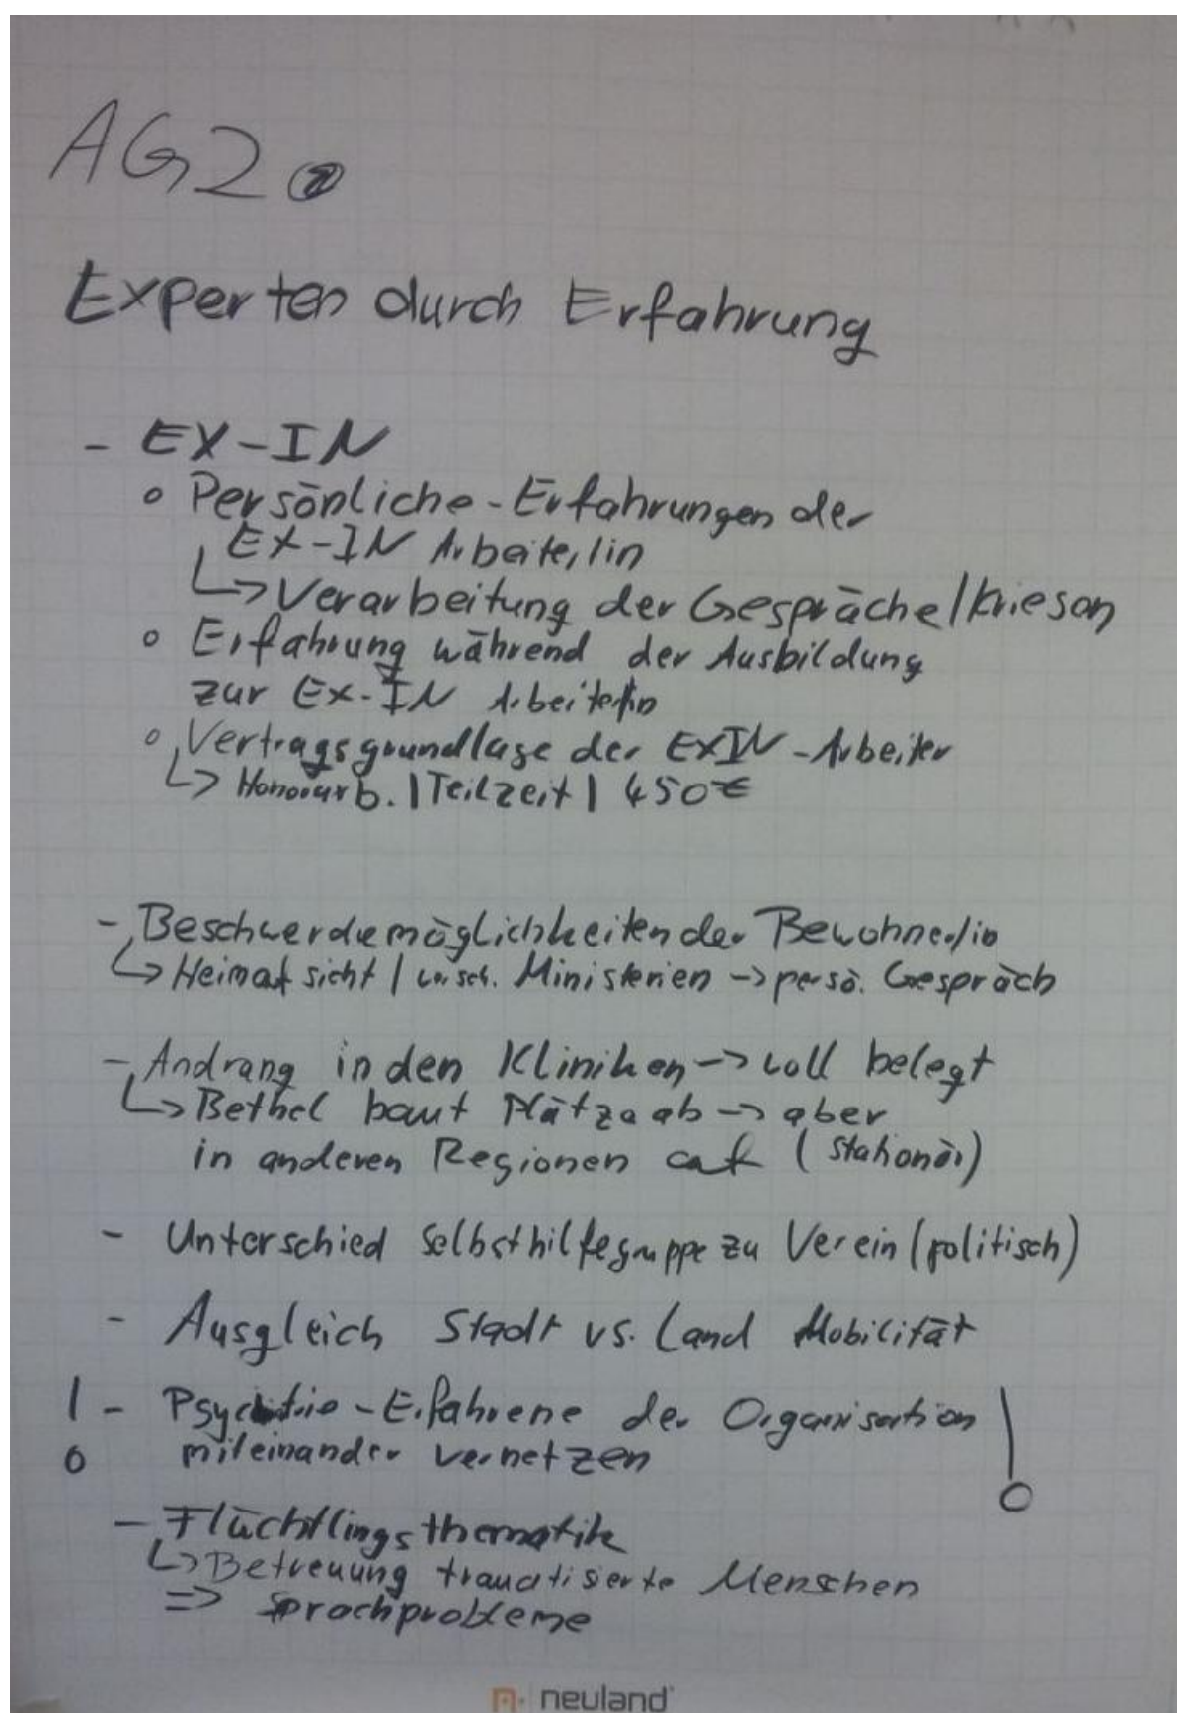 AG2
Experten durch Erfahrung
- EX-IN
o Persönliche-Erfahrungen der
EX-IN Arbeiter/in
↳ Verarbeitung der Gespräche/Kriesen
o Erfahrung während der Ausbildung
zur EX-IN Arbeiter/in
o Vertragsgrundlage der EXIN-Arbeiter
↳ Honorarb. | Teilzeit | 450€
- Beschwerdemöglichkeiten der Bewohner/in
↳ Heimaufsicht / Ministerien -> persö. Gespräch
- Andrang in den Kliniken -> voll belegt
↳ Bethel baut Plätze ab -> aber
in anderen Regionen auf (stationär)
- Unterschied Selbsthilfegruppe zu Verein (politisch)
- Ausgleich Stadt vs. Land Mobilität
! - Psychatrie-Erfahrene der Organisation !
miteinander vernetzen
- Flüchtlingsthematik
↳ Betreuung traumatisierte Menschen
=> Sprachprobleme
neuland